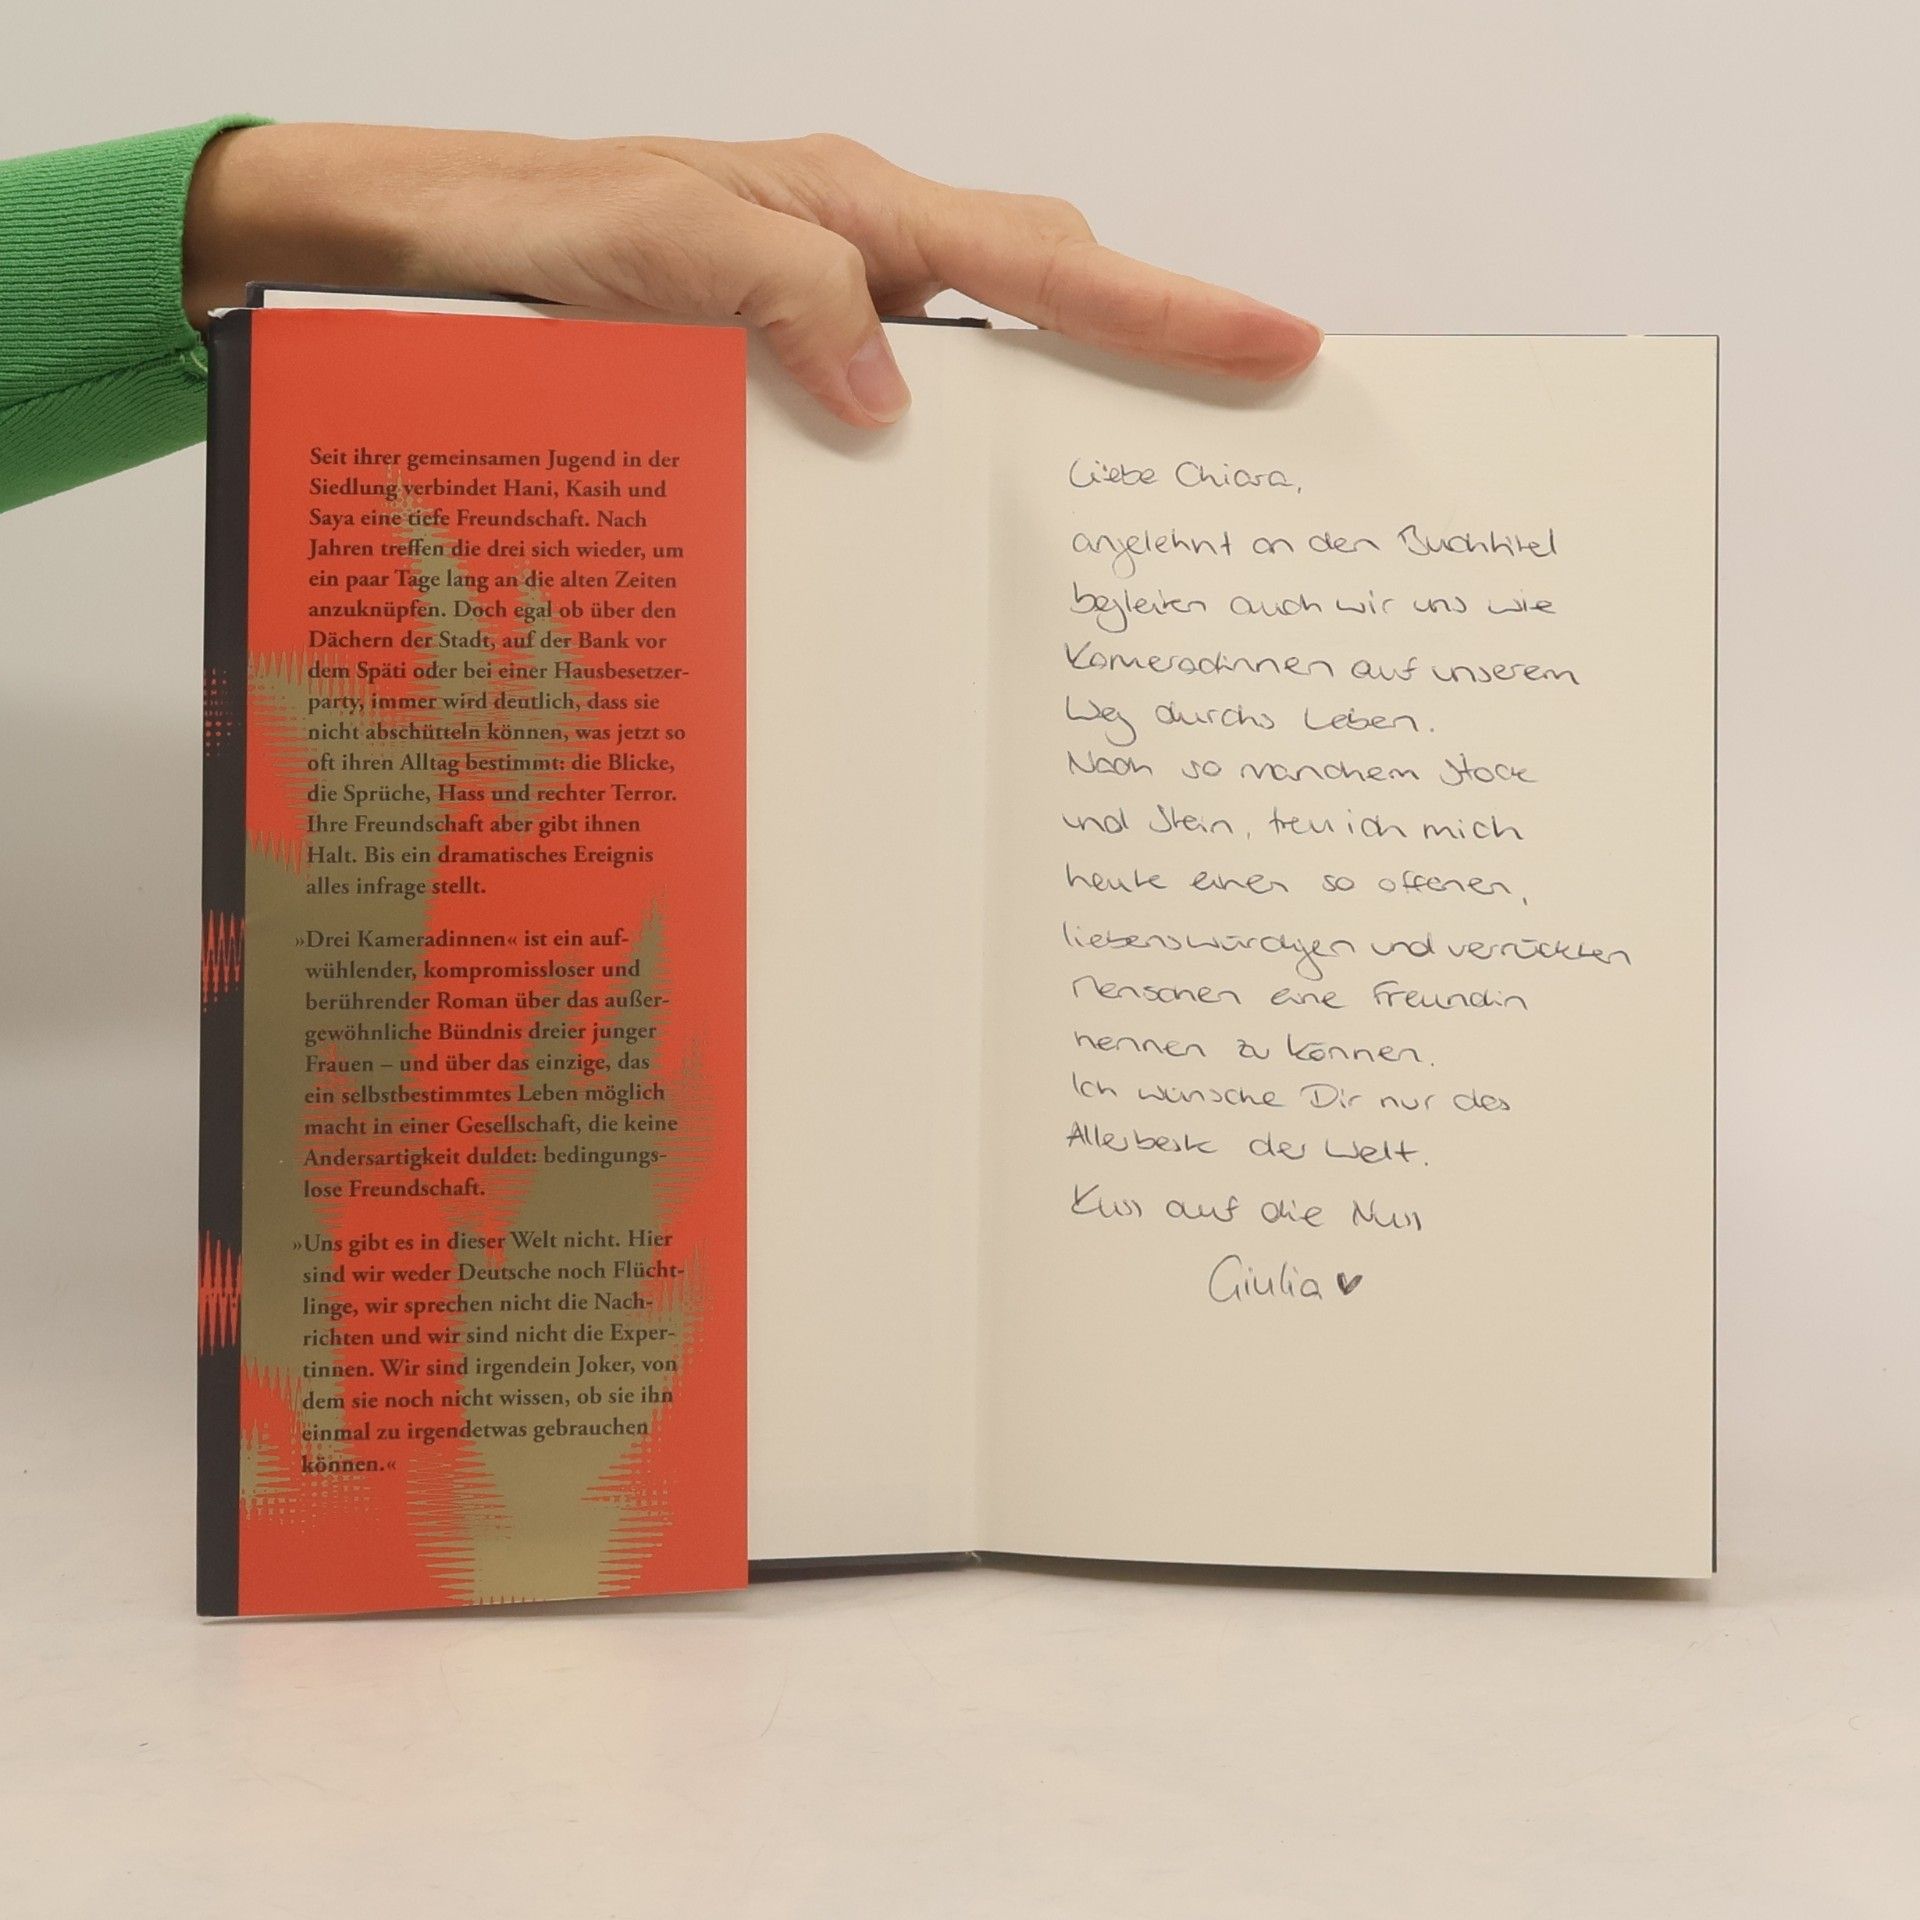 Seit ihrer gemeinsamen Jugend in der
Siedlung verbindet Hani, Kasih und
Saya eine tiefe Freundschaft. Nach
Jahren treffen die drei sich wieder, um
ein paar Tage lang an die alten Zeiten
anzuknüpfen. Doch egal ob über den
Dächern der Stadt, auf der Bank vor
dem Späti oder bei einer Hausbesetzer-
party, immer wird deutlich, dass sie
nicht abschütteln können, was jetzt so
oft ihren Alltag bestimmt: die Blicke,
die Sprüche, Hass und rechter Terror.
Ihre Freundschaft aber gibt ihnen
Halt. Bis ein dramatisches Ereignis
alles infrage stellt.
»Drei Kameradinnen« ist ein auf-
wühlender, kompromissloser und
berührender Roman über das außer-
gewöhnliche Bündnis dreier junger
Frauen – und über das einzige, das
ein selbstbestimmtes Leben möglich
macht in einer Gesellschaft, die keine
Andersartigkeit duldet: bedingungs-
lose Freundschaft.
»Uns gibt es in dieser Welt nicht. Hier
sind wir weder Deutsche noch Flücht-
linge, wir sprechen nicht die Nach-
richten und wir sind nicht die Exper-
tinnen. Wir sind irgendein Joker, von
dem sie noch nicht wissen, ob sie ihn
einmal zu irgendetwas gebrauchen
können.«
Liebe Chiara,
angelehnt an den Buchtitel
begleiten auch wir uns wie
Kameradinnen auf unserem
Weg durchs Leben.
Nach so manchem Stock
und Stein, freu ich mich
heute einen so offenen,
liebenswürdigen und verrückten
Menschen eine Freundin
nennen zu können.
Ich wünsche Dir nur das
Allerbeste der Welt.
Kuss auf die Nuss
Giulia ♥